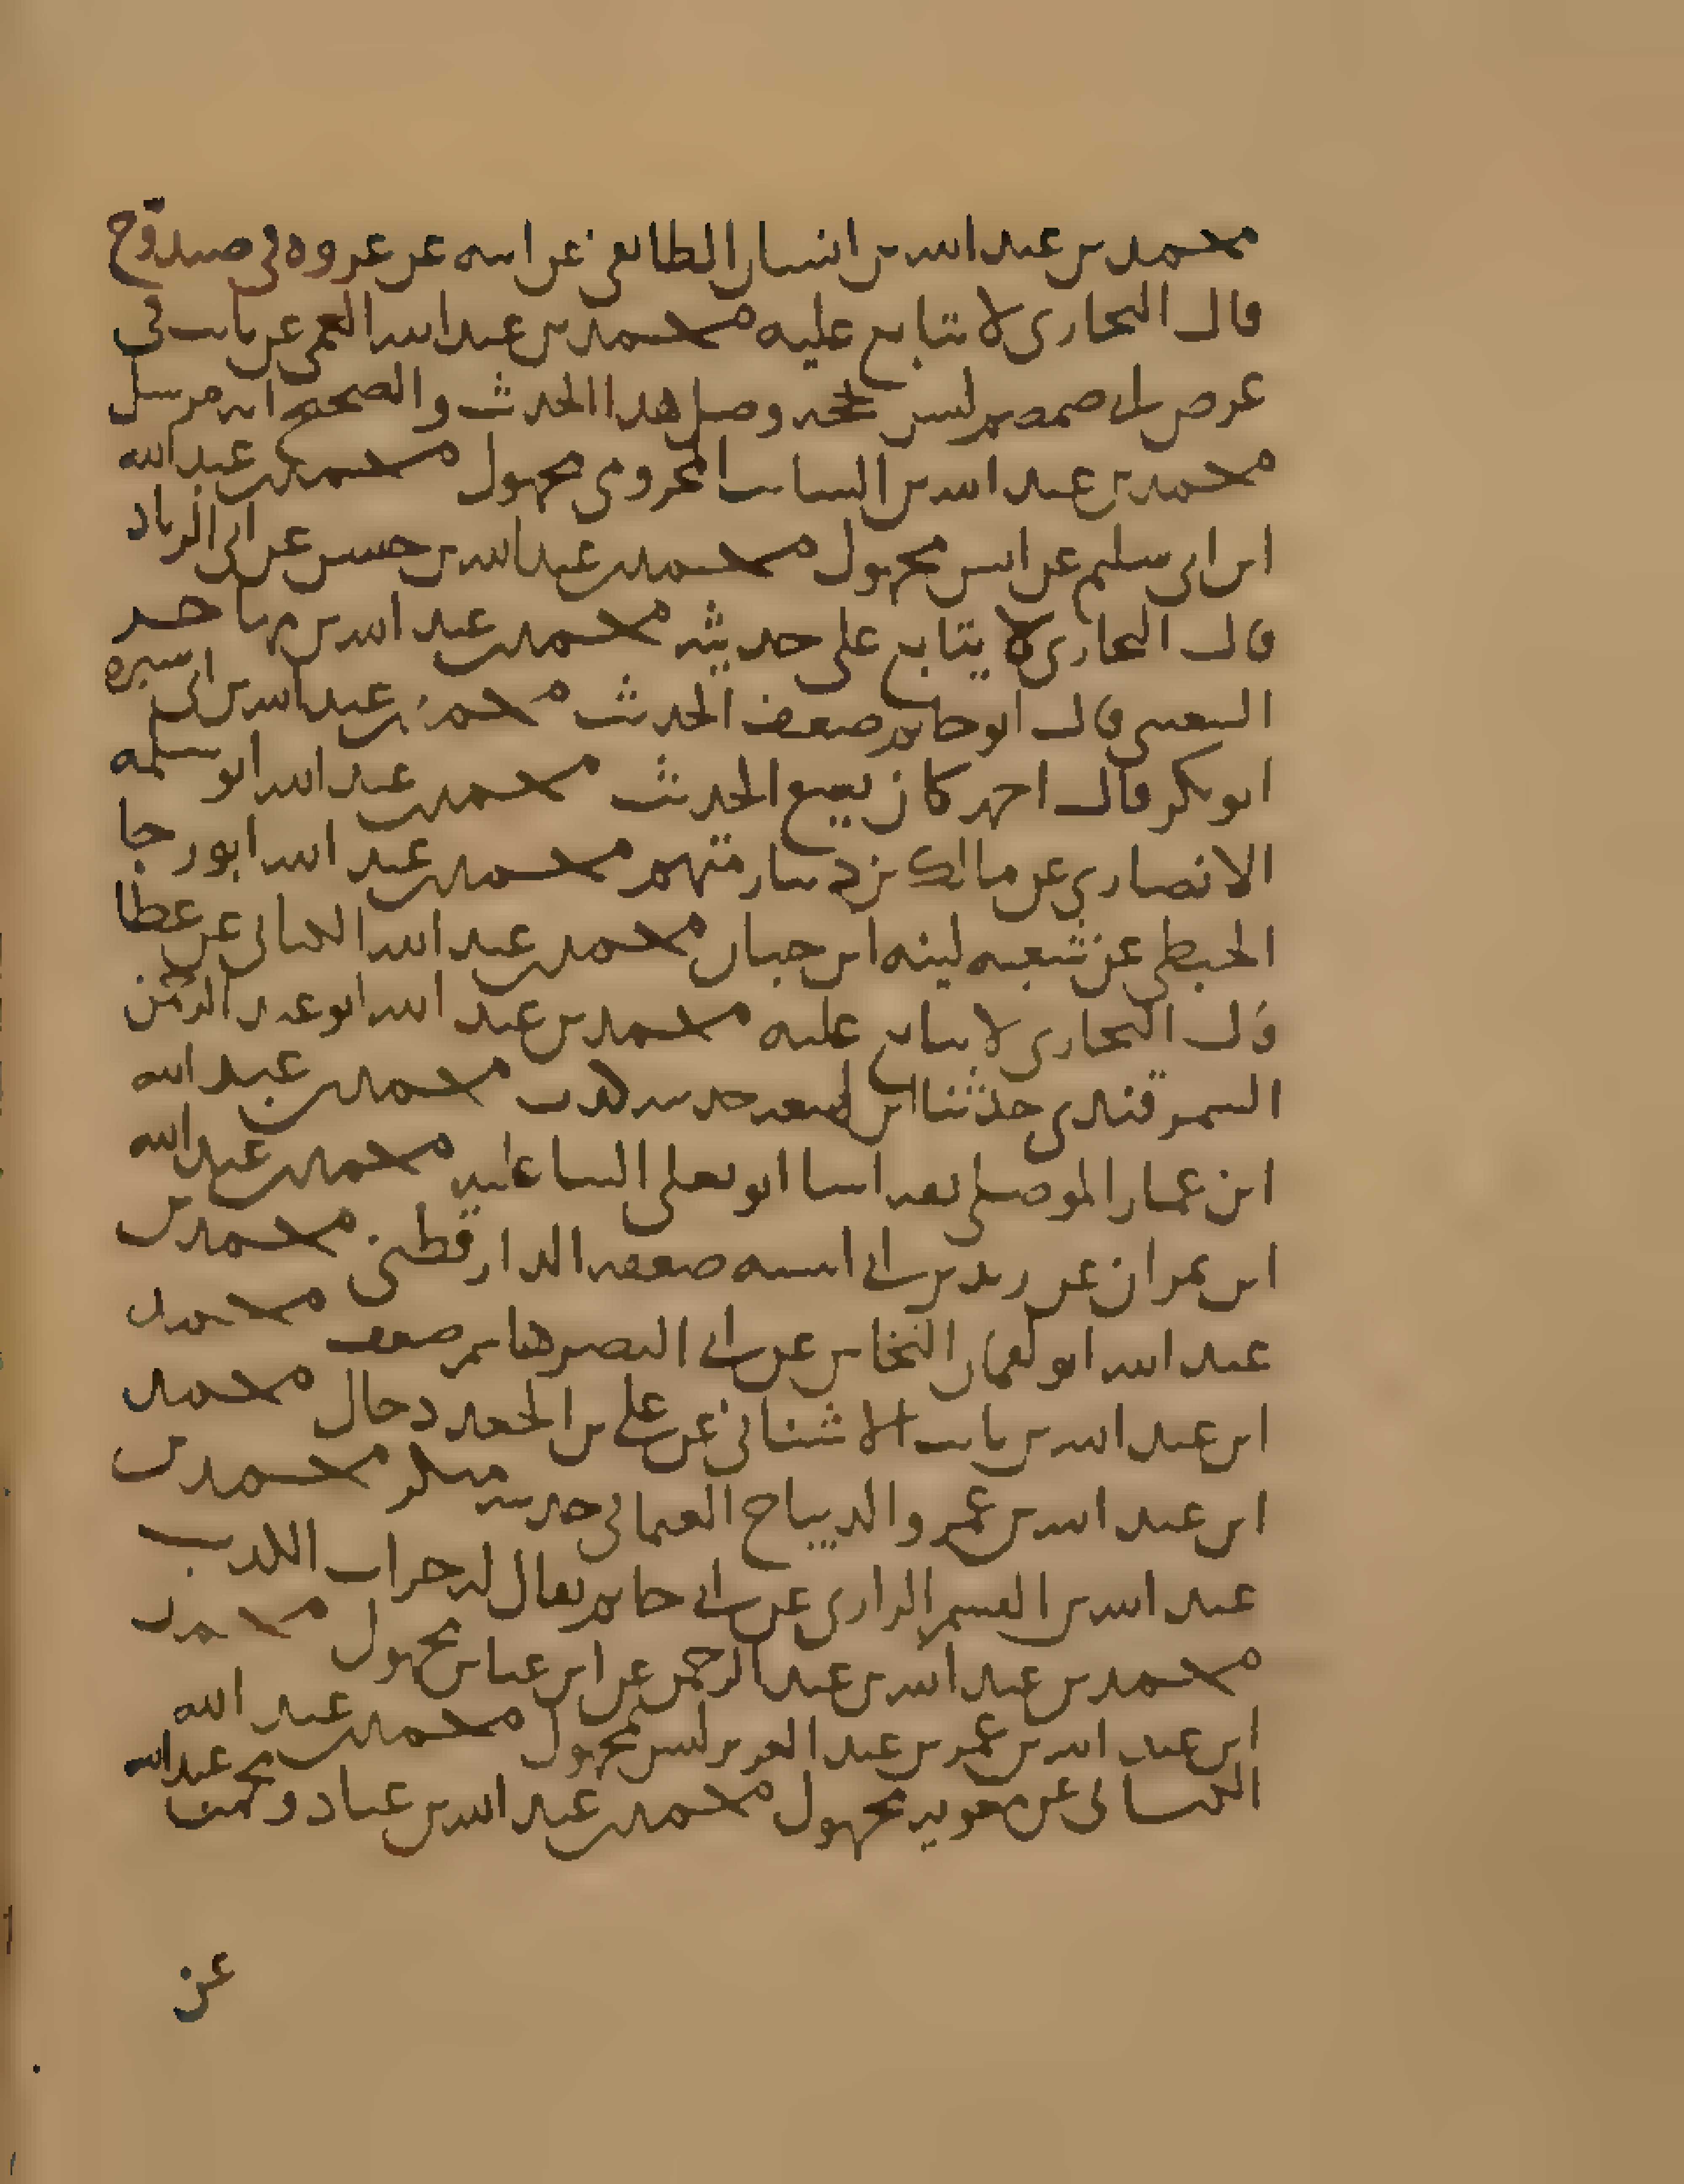 محمد بن عبد الله بن انسان الطائفي عن ابيه عن عروه في صيد وج
قال البخاري لا يتابع عليه محمد بن عبد الله العمي عن ثابت في
عرض ابي ضمضم ليس بحجه وصل هذا الحديث والصحيح انه مرسل
محمد بن عبد الله بن السائب المخزومي مجهول محمد بن عبد الله
ابن ابي سليم عن انس مجهول محمد بن عبد الله بن حسن عن ابي الزناد
قال البخاري لا يتابع على حديثه محمد بن عبد الله بن مهاجر
الشعيثي قال ابو حاتم ضعيف الحديث محمد بن عبد الله بن ابي سبره
ابو بكر قال احمد كان يضع الحديث محمد بن عبد الله ابو سلمه
الانصاري عن مالك بن دينار متهم محمد بن عبد الله ابو رجا
الحبطي عن شعبه لينه ابن حبان محمد بن عبد الله الكناني عن عطا
قال البخاري لا يتابع عليه محمد بن عبد الله ابو عبد الرحمن
السمرقندي حدثنا ابن لهيعه حديثه كذب محمد بن عبد الله
ابن عمار الموصلي ثقه اسا ابو يعلى الثنا عليه محمد بن عبد الله
ابن عمران عن زيد بن ابي انيسه ضعفه الدارقطني محمد بن
عبد الله ابو لقمان النخاس عن ابي النضر هاشم ضعيف محمد
ابن عبد الله بن ثابت الاشناني عن علي بن الجعد دجال محمد
ابن عبد الله بن عمرو الديباج العثماني حديثه منكر محمد بن
عبد الله بن القسم الرازي عن ابي حاتم يقال له جراب الكذب
محمد بن عبد الله بن عبد الرحمن عن ابن عباس مجهول محمد
ابن عبد الله بن عمر بن عبد العزيز ليس مجهول محمد بن عبد الله
الكناني عن معويه مجهول محمد بن عبد الله بن عباد ومحمد بن عبد الله
عن